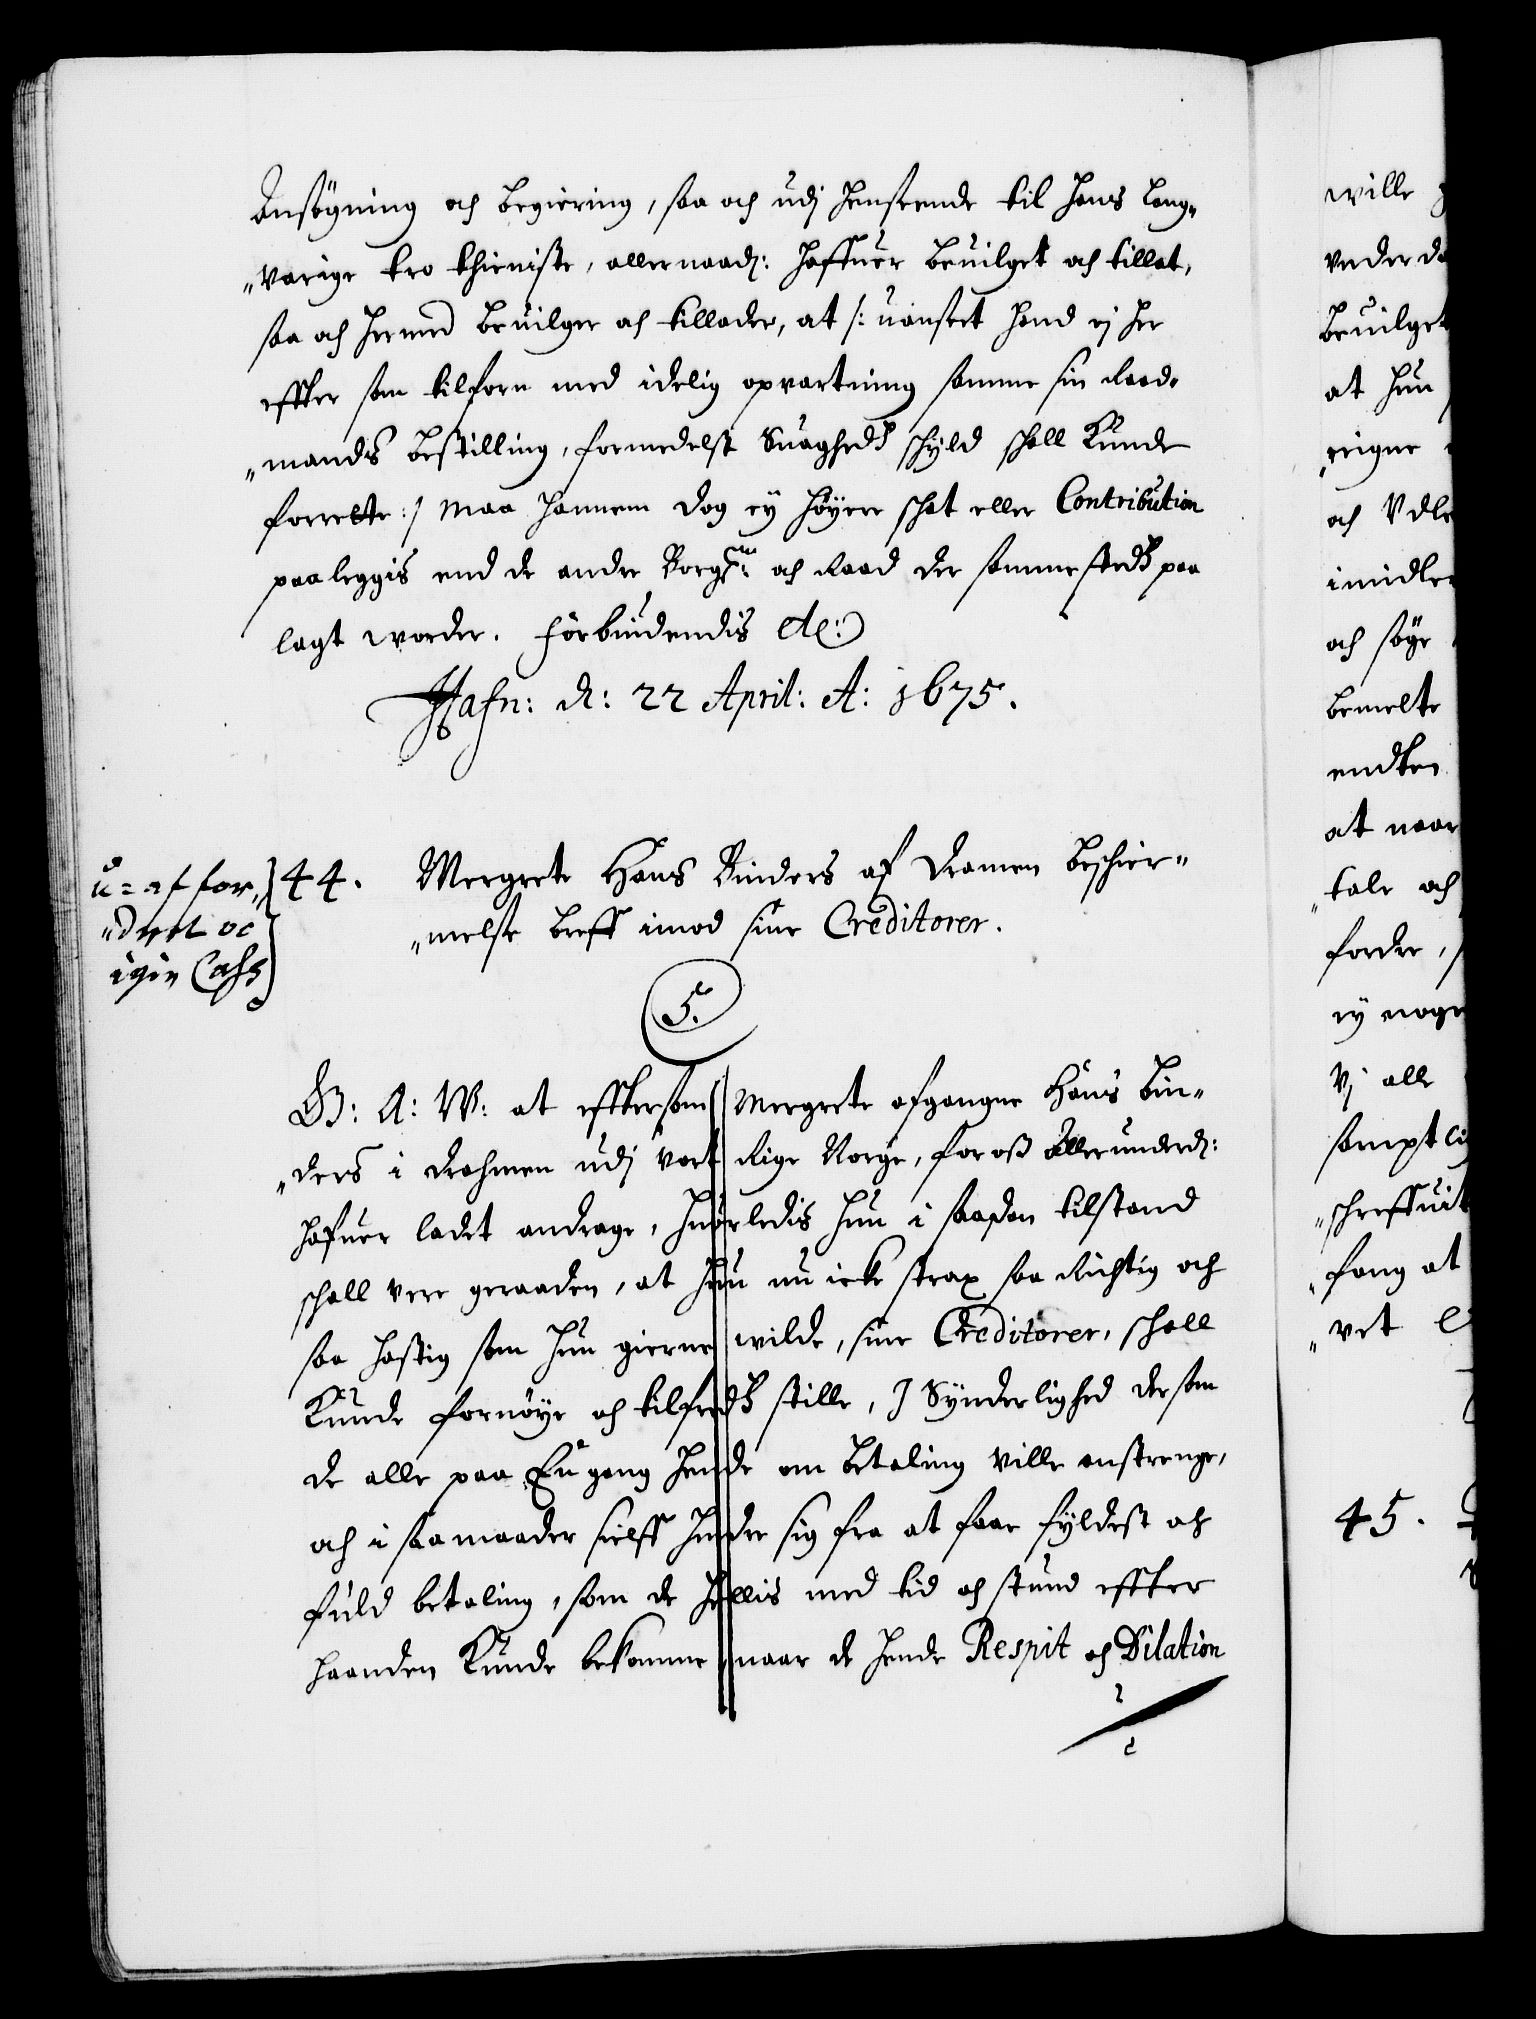 Ansøgning och begiering, saa och udj henseende til hans lang„
„varige tro thieniste, allernaad: haffuer beuilget och tillat,
saa och hermed beuilger och tillader, at /: uanseet hand ej her
effter som tilforn med idelig opvartning samme sin Raad„
„mands bestilling, formedelst Suagheds schyld schall Kunde
forrette :/ maa hannem dog ey høyere schat eller Contribution
paaleggis end de andre Borgem: och Raad der sammesteds paa
lagt worder. Forbiudendis etc:
Hafn: d: 22 April: A: 1675.
u=affor„
„dret oc
igien Cass
44. Mergrete Hans Binders af Dramen beschier„
„melse breff imod sine Creditorer.
5.
G: A: W: at efftersom Mergrete afgangne Hans Bin„
„ders i Drahmen udj vort Rige Norge, for oss allerunderd:
hafuer ladet andrage, huorledis hun i saadan tilstand
schall vere geraaden, at hun nu icke strax saa Richtig och
saa hastig som hun gierne wilde, sine Creditorer, schall
Kunde fornøye och tilfreds stille, J Synderlighed dersom
de alle paa Een gang hende om betaling ville anstrenge,
och i saa maader sielff hindre sig fra at faae fyldest och
fuld betaling, som de hellis med tid och stund effter
haanden Kunde bekomme, naar de hende Respit och Dilation
wille
vnder da
beuilget
at hun
eigne
och Vdle
imidler
och søge
bemelte
endten
at naar
„tale och
fordre,
ey noge
Vj alle
samptli
„schreffuit
„fang at
„vet
45.